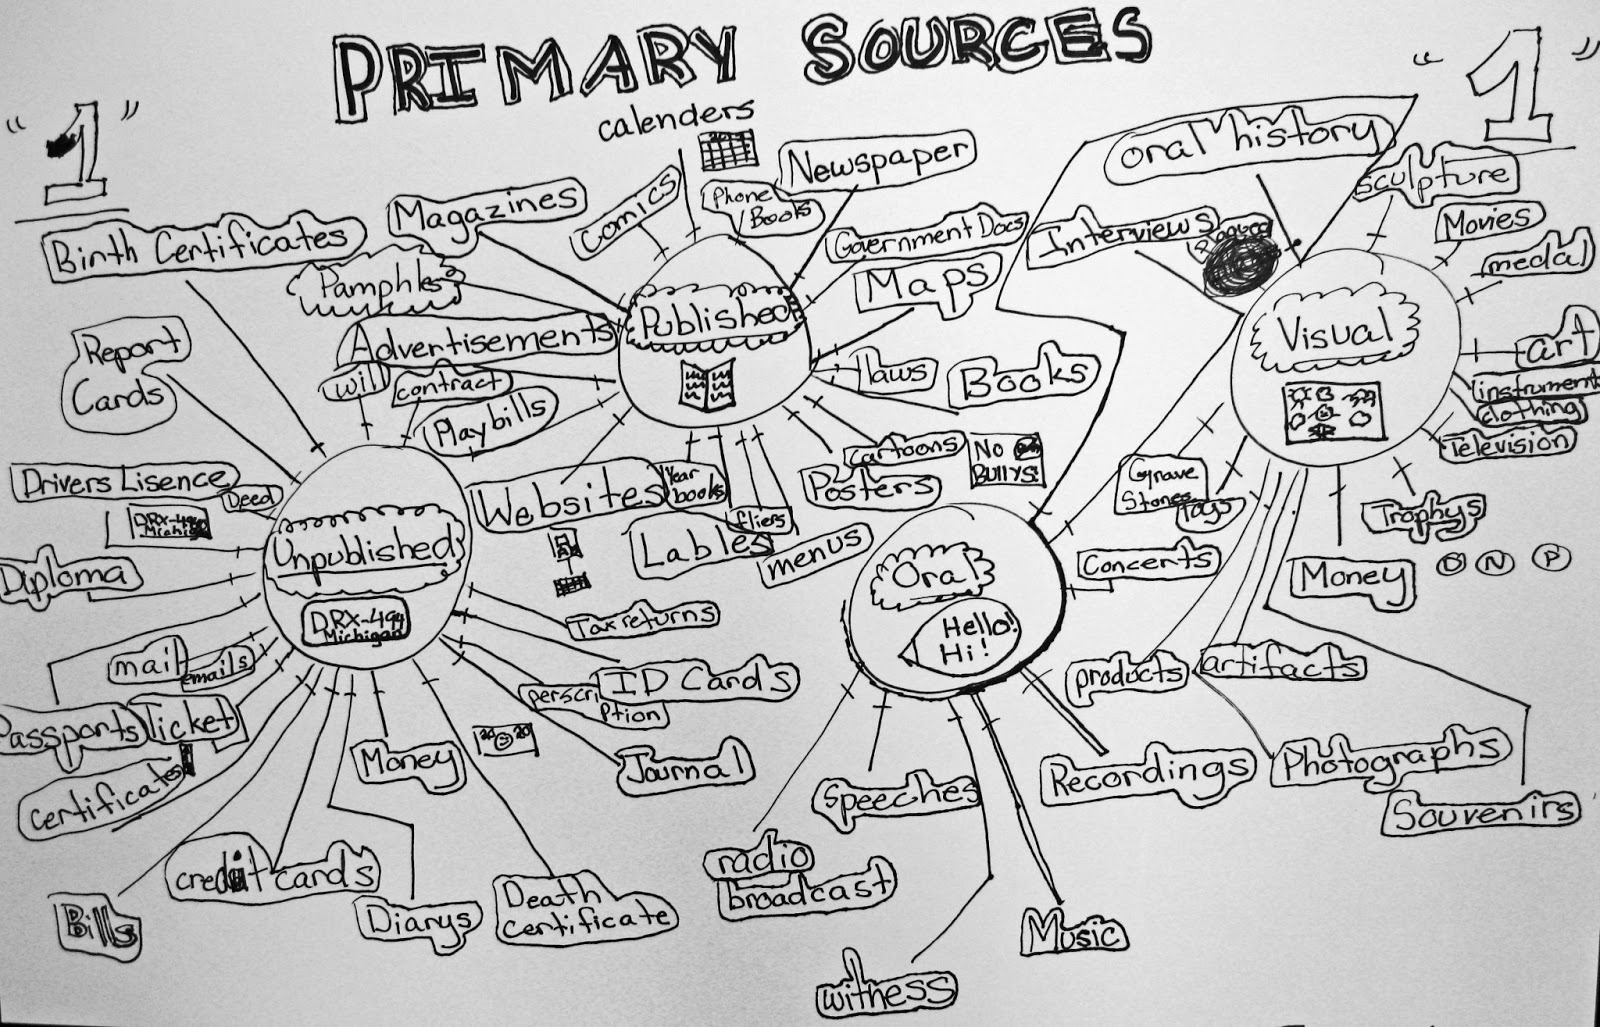 PRIMARY SOURCES
"1"
"1"
calenders
Newspaper
Phone
Books
Comics
Magazines
Birth Certificates
Pamphlets
Advertisements
Government Docs
Maps
Published
laws
Books
will
contract
Playbills
Report
Cards
Drivers Lisence
Deed
DRX-494
Michigan
Websites
Year
books
Lables
fliers
menus
cartoons
Posters
No
BULLYS!
Unpublished
DRX-494
Michigan
Diploma
mail
emails
Passports
Ticket
certificates
Bills
credit cards
Money
Diarys
Death
certificate
Tax returns
perscri
ption
ID Cards
20 20
Journal
Oral
Hello!
Hi!
oral history
Interviews
Concerts
Recordings
Music
witness
Speeches
radio
broadcast
Visual
sculpture
Movies
medal
art
instrument
clothing
Television
Trophys
Money
D N P
Grave
Stones
Toys
products
artifacts
Photographs
Souvenirs